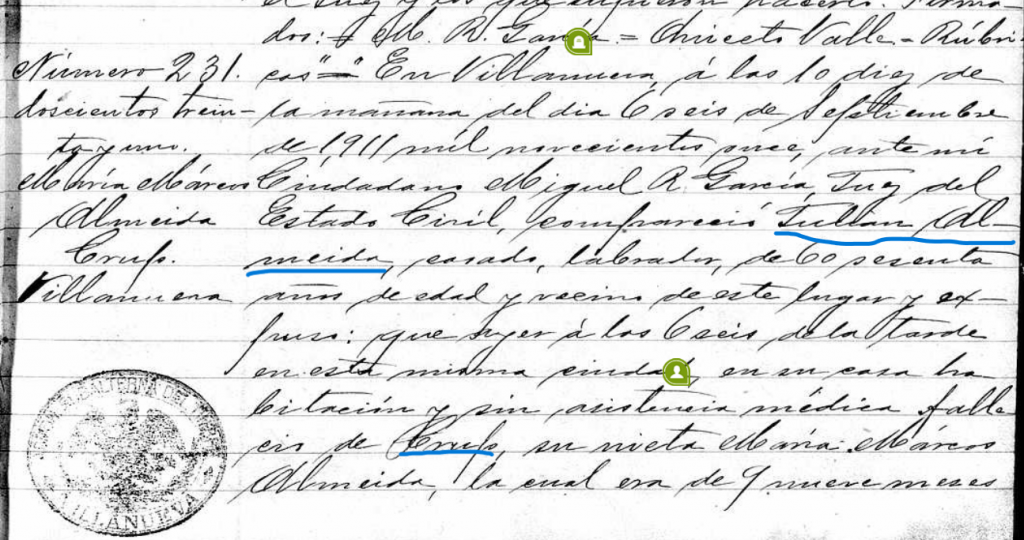 el Juez y los que supieron hacerlo. Firma-
dos: M. R. García = Aniceto Valle - Rúbri-
Número 231.
doscientos trein-
ta y uno.
María Márcos
Almeida
Crup.
Villanueva
cas"=" En Villanueva, á las 10 diez de
la mañana del dia 6 seis de Septiembre
de 1,911 mil novecientos once, ante mí
Ciudadano Miguel R. García, Juez del
Estado Civil, compareció Julian Al-
meida, casado, labrador, de 60 sesenta
años de edad y vecino de este lugar y ex-
puso: que ayer á las 6 seis de la tarde
en esta misma ciudad, en su casa ha
bitación y sin asistencia médica falle
ció de Crup, su nieta María Márcos
Almeida, la cual era de 9 nueve meses
VILLANUEVA